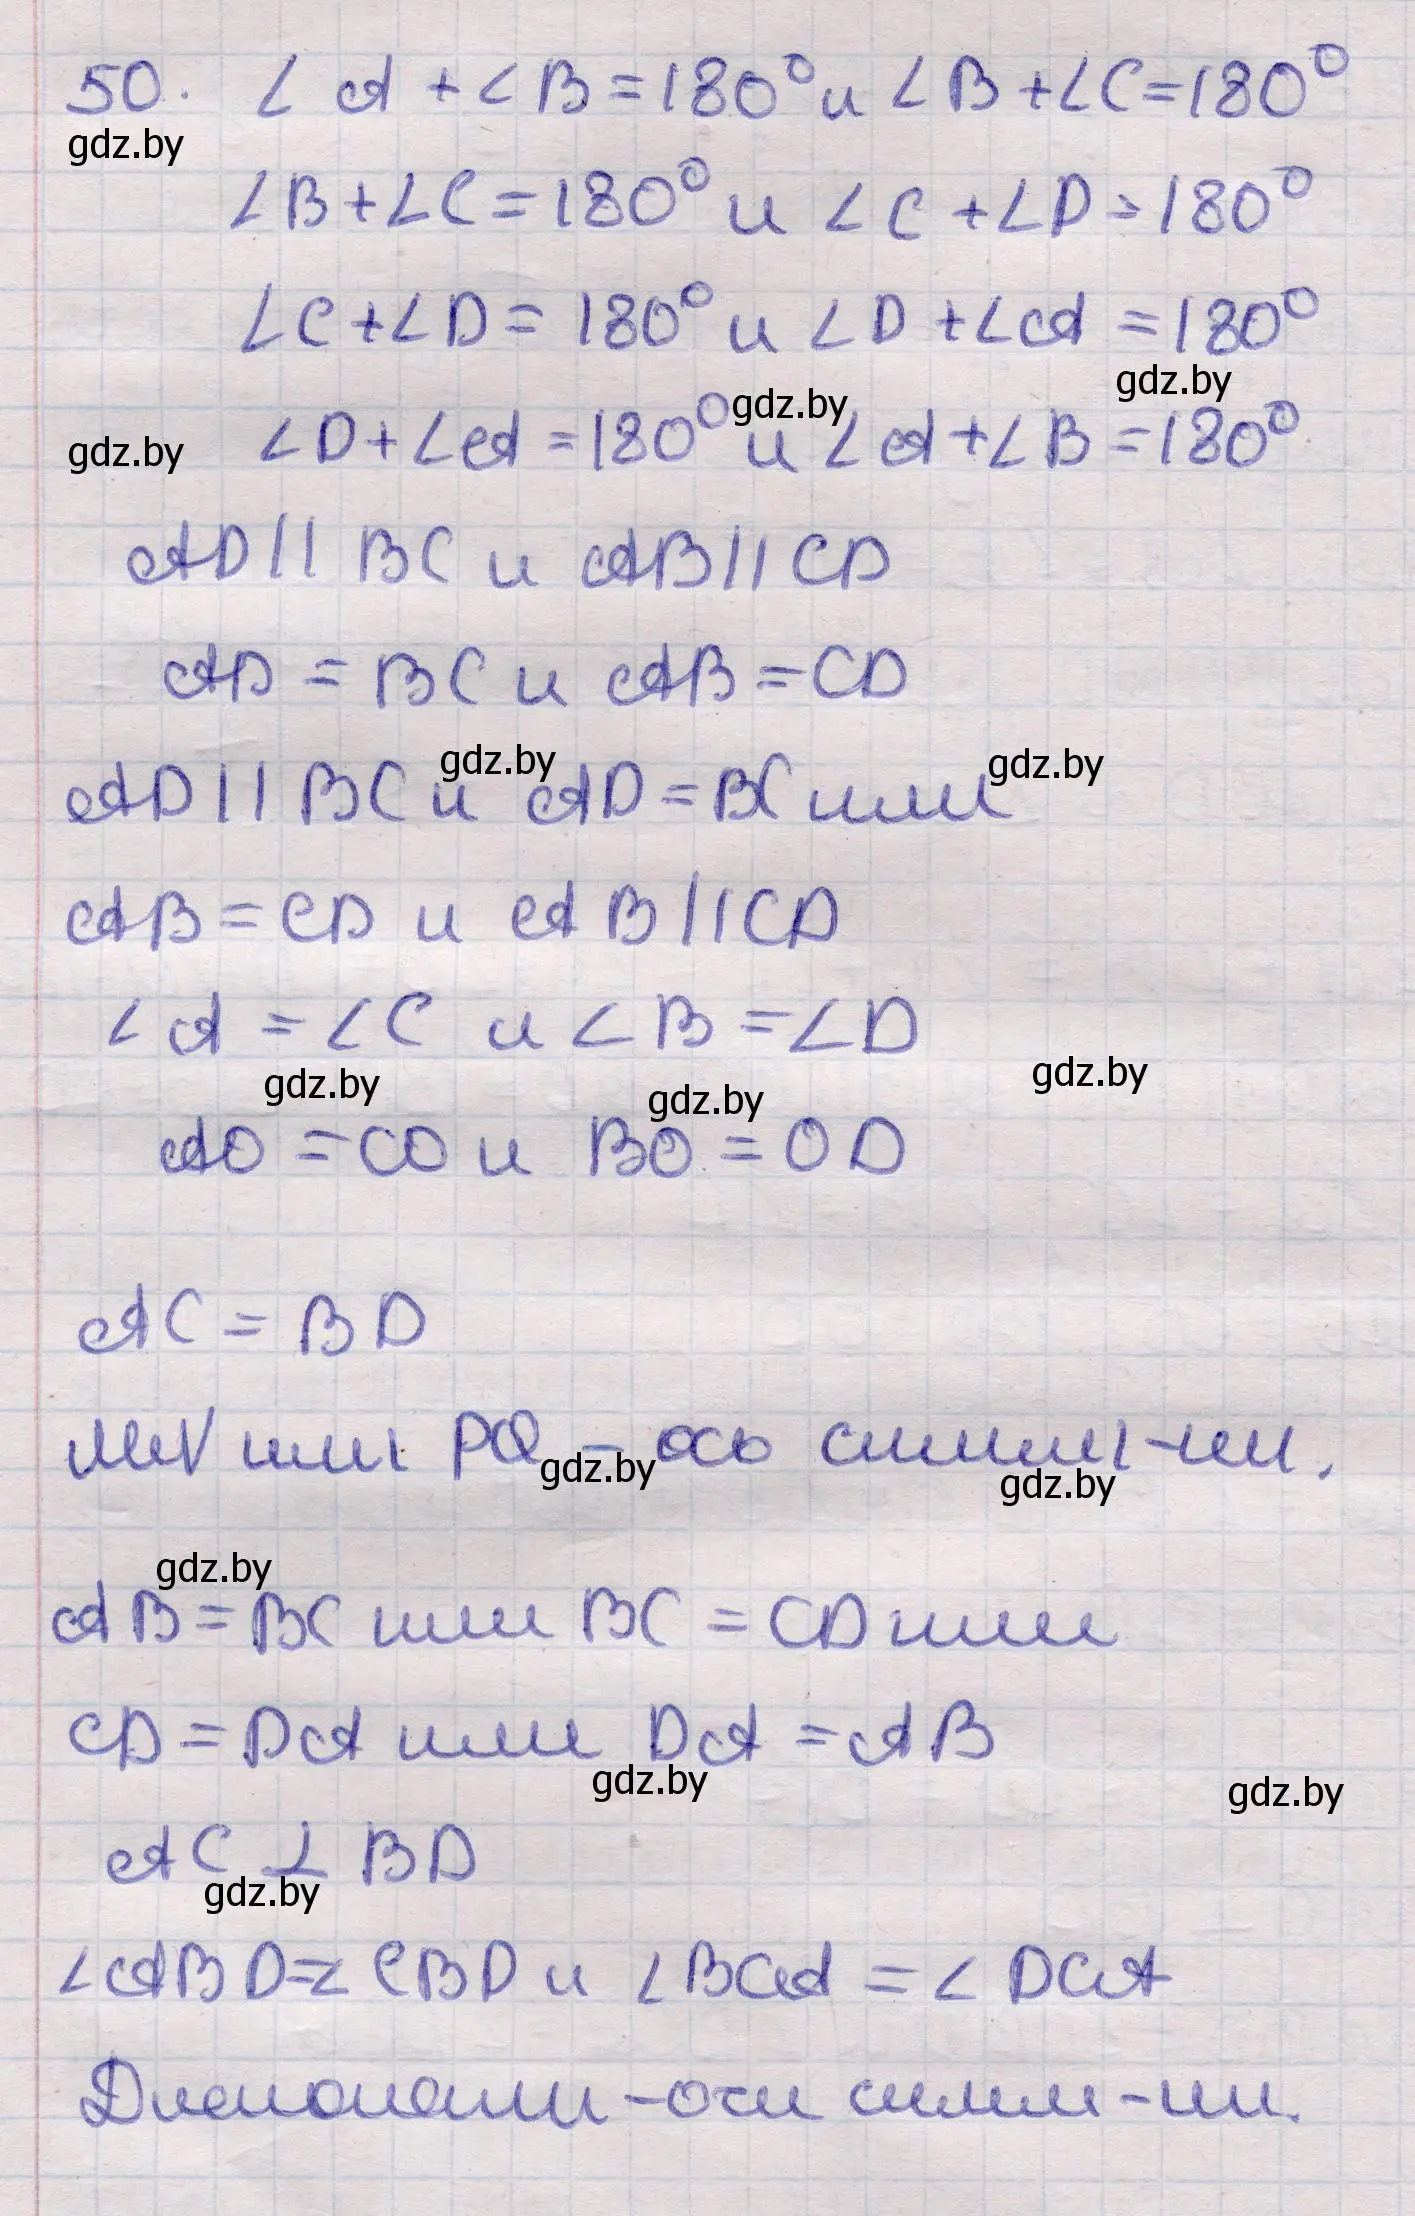 50. ∠A + ∠B = 180° и ∠B + ∠C = 180°
gdz.by
∠B + ∠C = 180° и ∠C + ∠D = 180°
∠C + ∠D = 180° и ∠D + ∠A = 180°
gdz.by
gdz.by
∠D + ∠A = 180° и ∠A + ∠B = 180°
gdz.by
AD || BC и AB || CD
AD = BC и AB = CD
gdz.by
gdz.by
AD || BC и AD = BC или
AB = CD и AB || CD
∠A = ∠C и ∠B = ∠D
gdz.by
gdz.by
gdz.by
AO = CO и BO = OD
AC = BD
MN или PQ – ось симм-ии.
gdz.by
gdz.by
gdz.by
AB = BC или BC = CD или
CD = DA или DA = AB
gdz.by
gdz.by
AC ⊥ BD
gdz.by
∠ABD = ∠CBD и ∠BCA = ∠DCA
Диагонали – оси симм-ии.